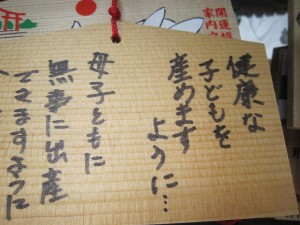 健康な
子どもを
産めます
ように…
母子ともに
無事に出産
できますように
開運
家内